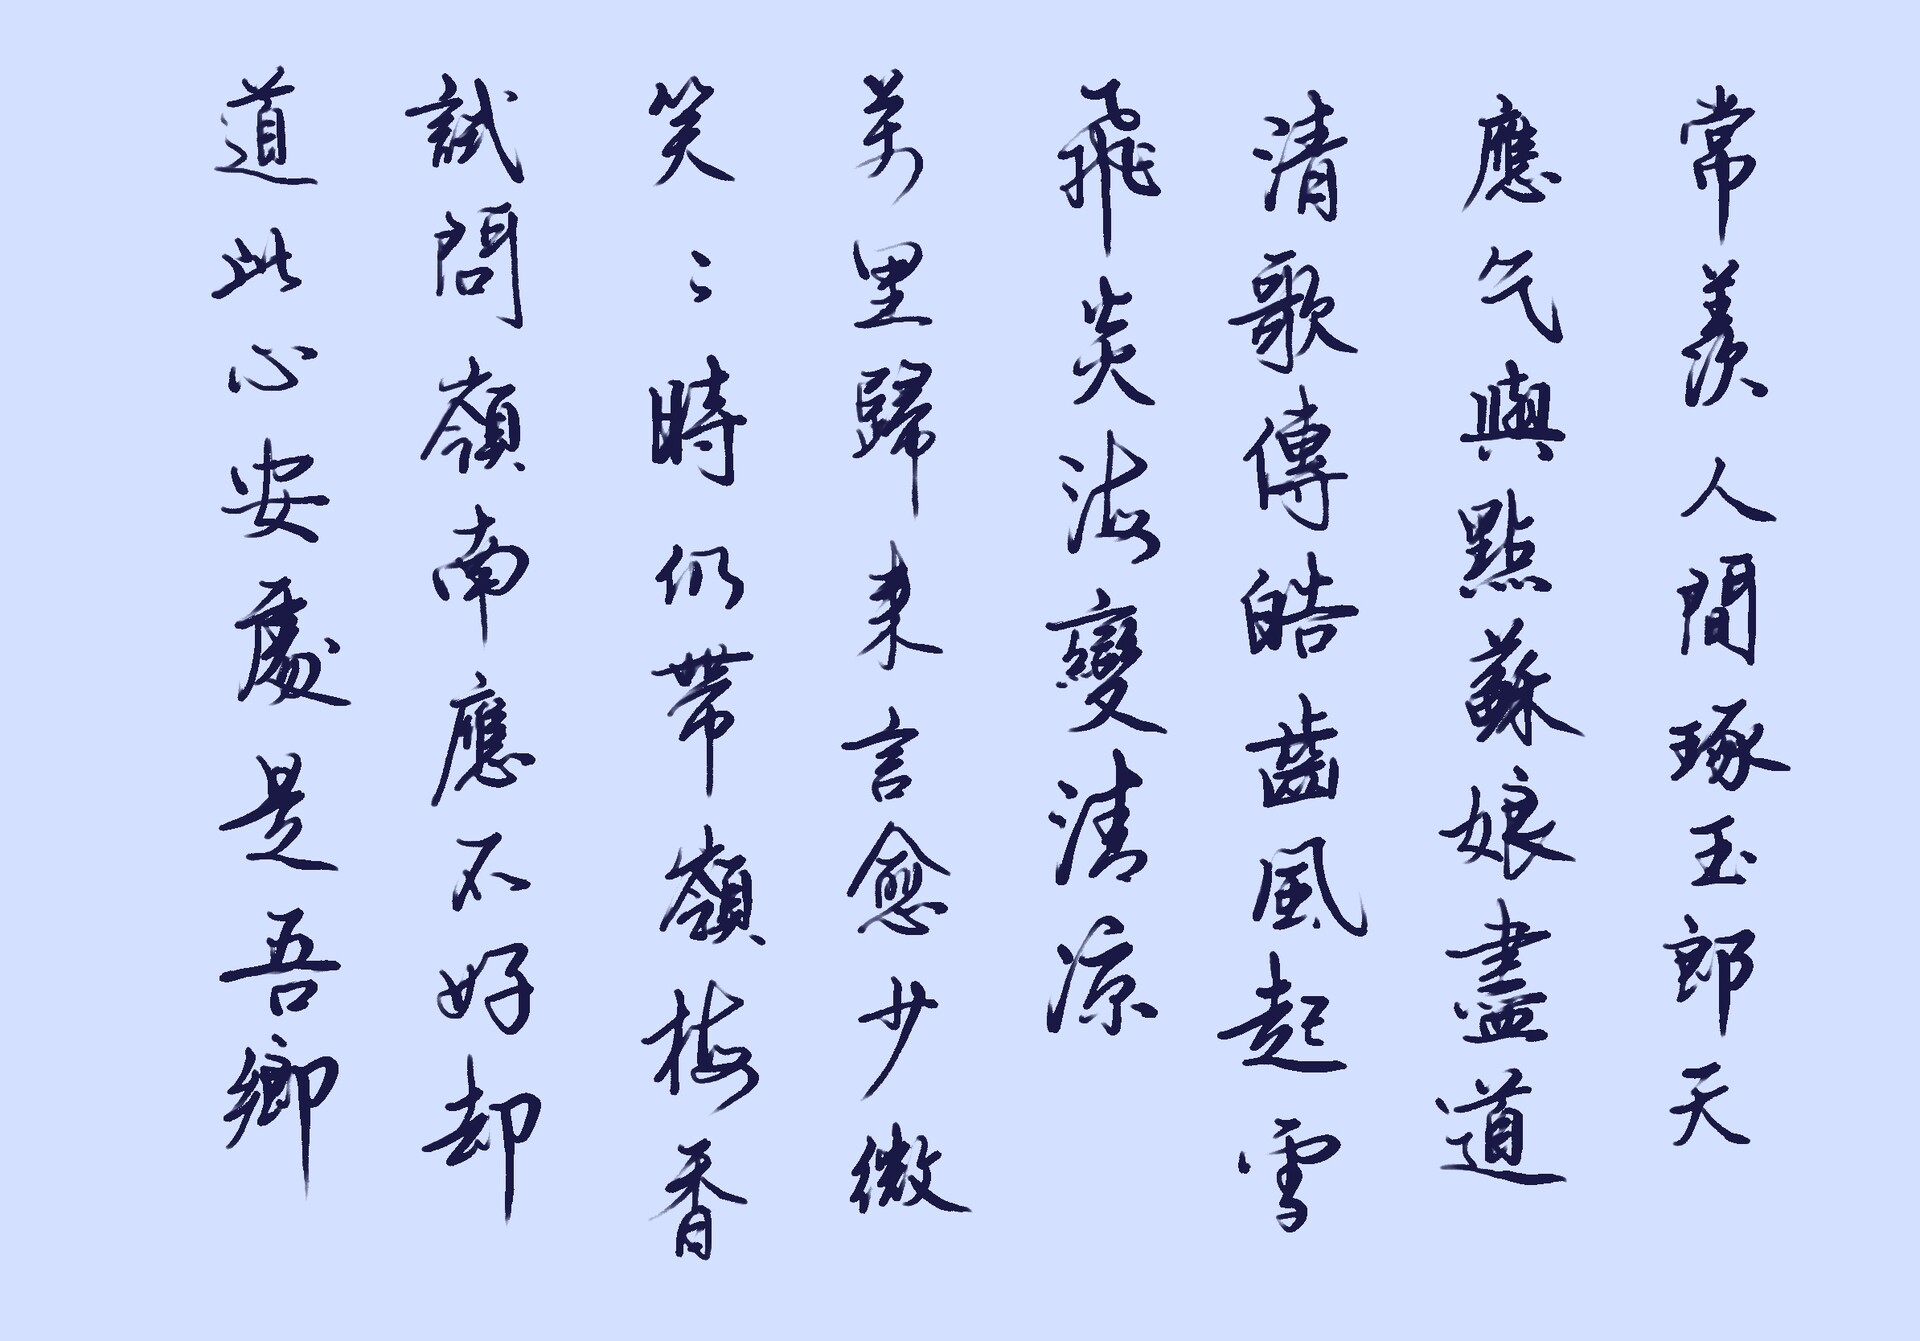 常羨人間琢玉郎天
應乞與點蘇娘盡道
清歌傳皓齒風起雪
飛炎海變清涼
萬里歸來言愈少微
笑〻時仍帶嶺梅香
試問嶺南應不好却
道此心安處是吾鄉